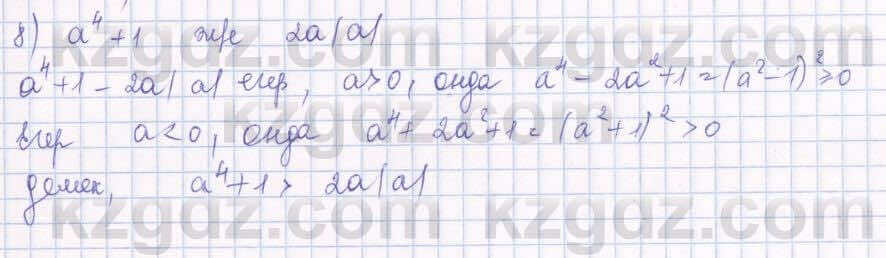 8) a⁴+1 және 2a|a|
a⁴+1-2a|a| егер, a>0, онда a⁴-2a²+1=(a²-1)²≥0
Егер a<0, онда a⁴+2a²+1=(a²+1)²>0
демек, a⁴+1> 2a|a|
kzgdz.com kzgdz.com
kzgdz.com kzgdz.com